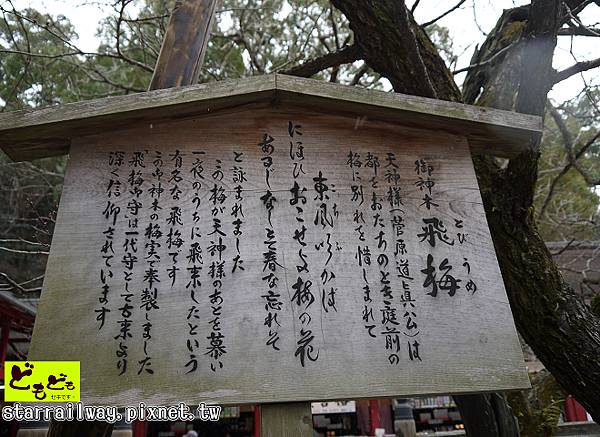 御神木 飛梅
とび うめ
天神様(菅原道真公)は
都をおたちのとき庭前の
梅に別れを惜しまれて
東風吹かば
こち ふ
にほひおこせよ梅の花
あるじなしとて春な忘れそ
と詠まれました
この梅が天神様のあとを慕い
一夜のうちに飛来したという
有名な飛梅です
この御神木の梅実で奉製しました
「飛梅」守は一代守として古来より
深く信仰されています
どもども
セキです。
starrailway.pixnet.tw